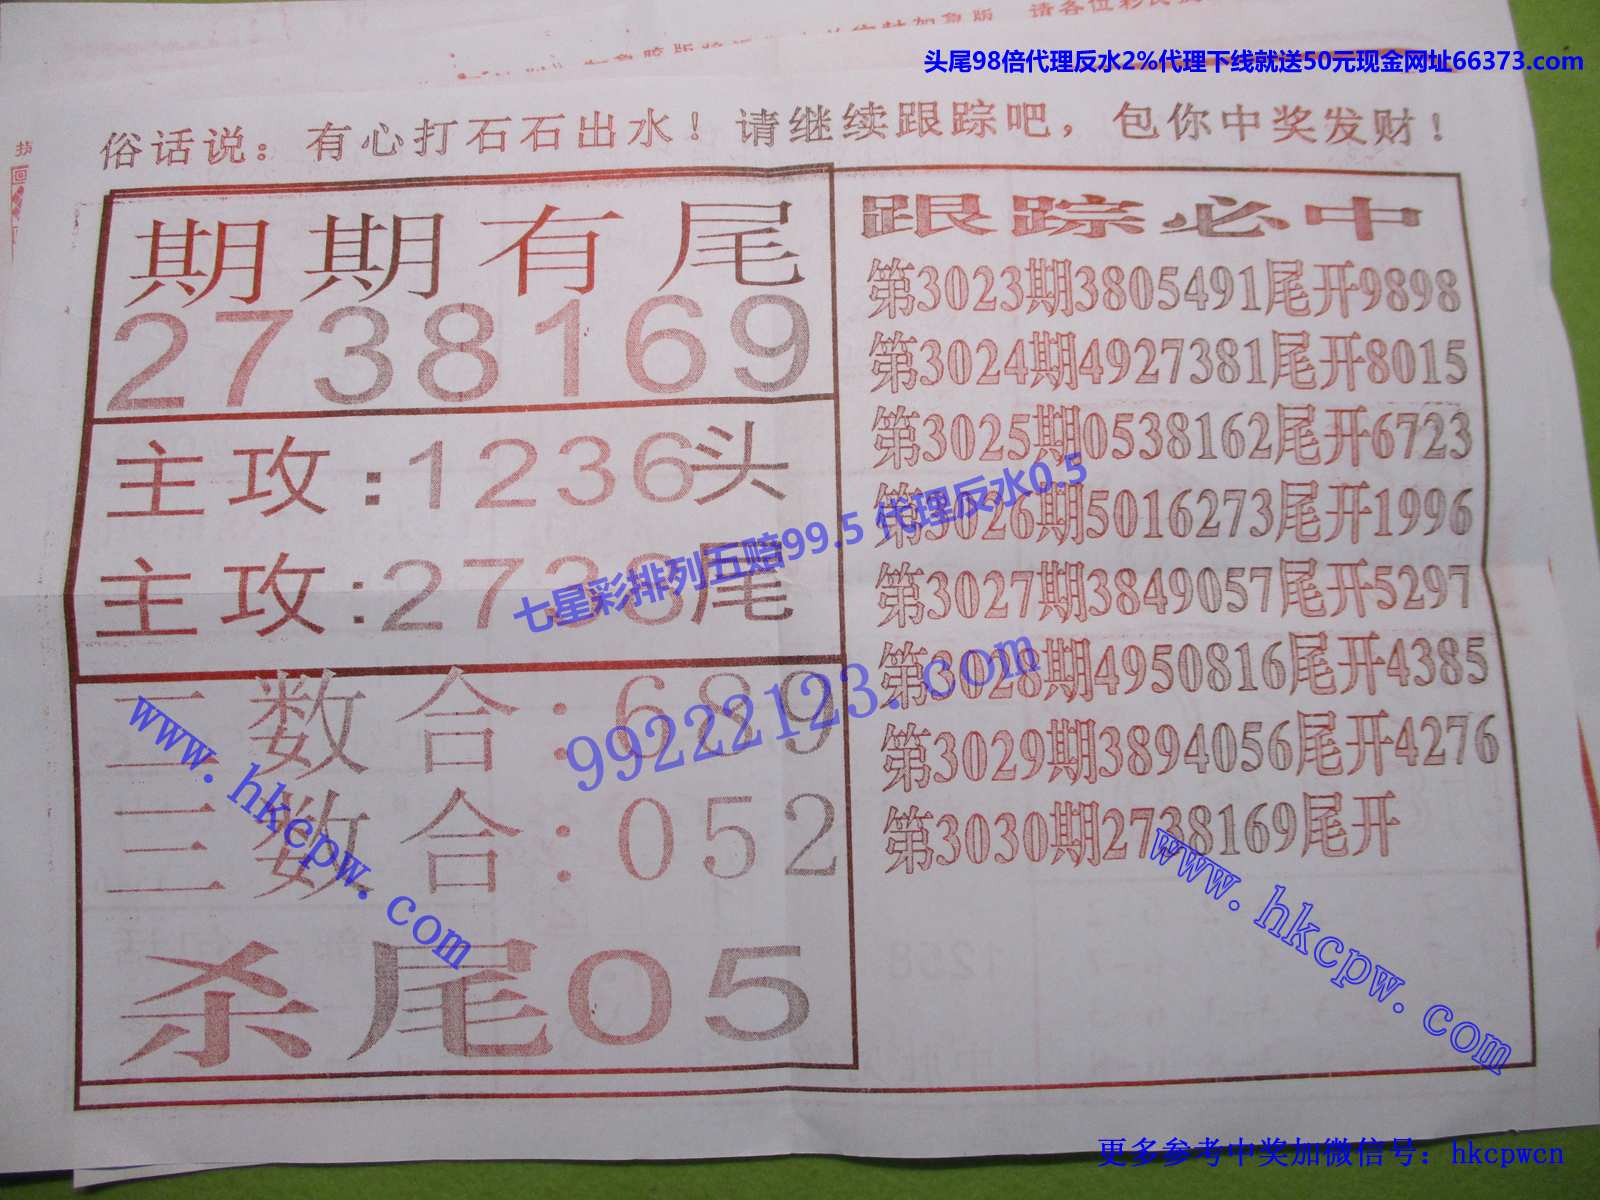 请各位彩民提
头尾98倍代理反水2%代理下线就送50元现金网址66373.com
俗话说：有心打石石出水！请继续跟踪吧，包你中奖发财！
期期有尾
2738169
主攻:1236头
主攻:2736尾
二数合:689
三数合:052
杀尾05
跟踪必中
第3023期3805491尾开9898
第3024期4927381尾开8015
第3025期0538162尾开6723
第3026期5016273尾开1996
第3027期3849057尾开5297
第3028期4950816尾开4385
第3029期3894056尾开4276
第3030期2738169尾开
七星彩排列五赔99.5 代理反水0.5
99222123.com
www.hkcpw.com
www.hkcpw.com
更多参考中奖加微信号：hkcpwcn